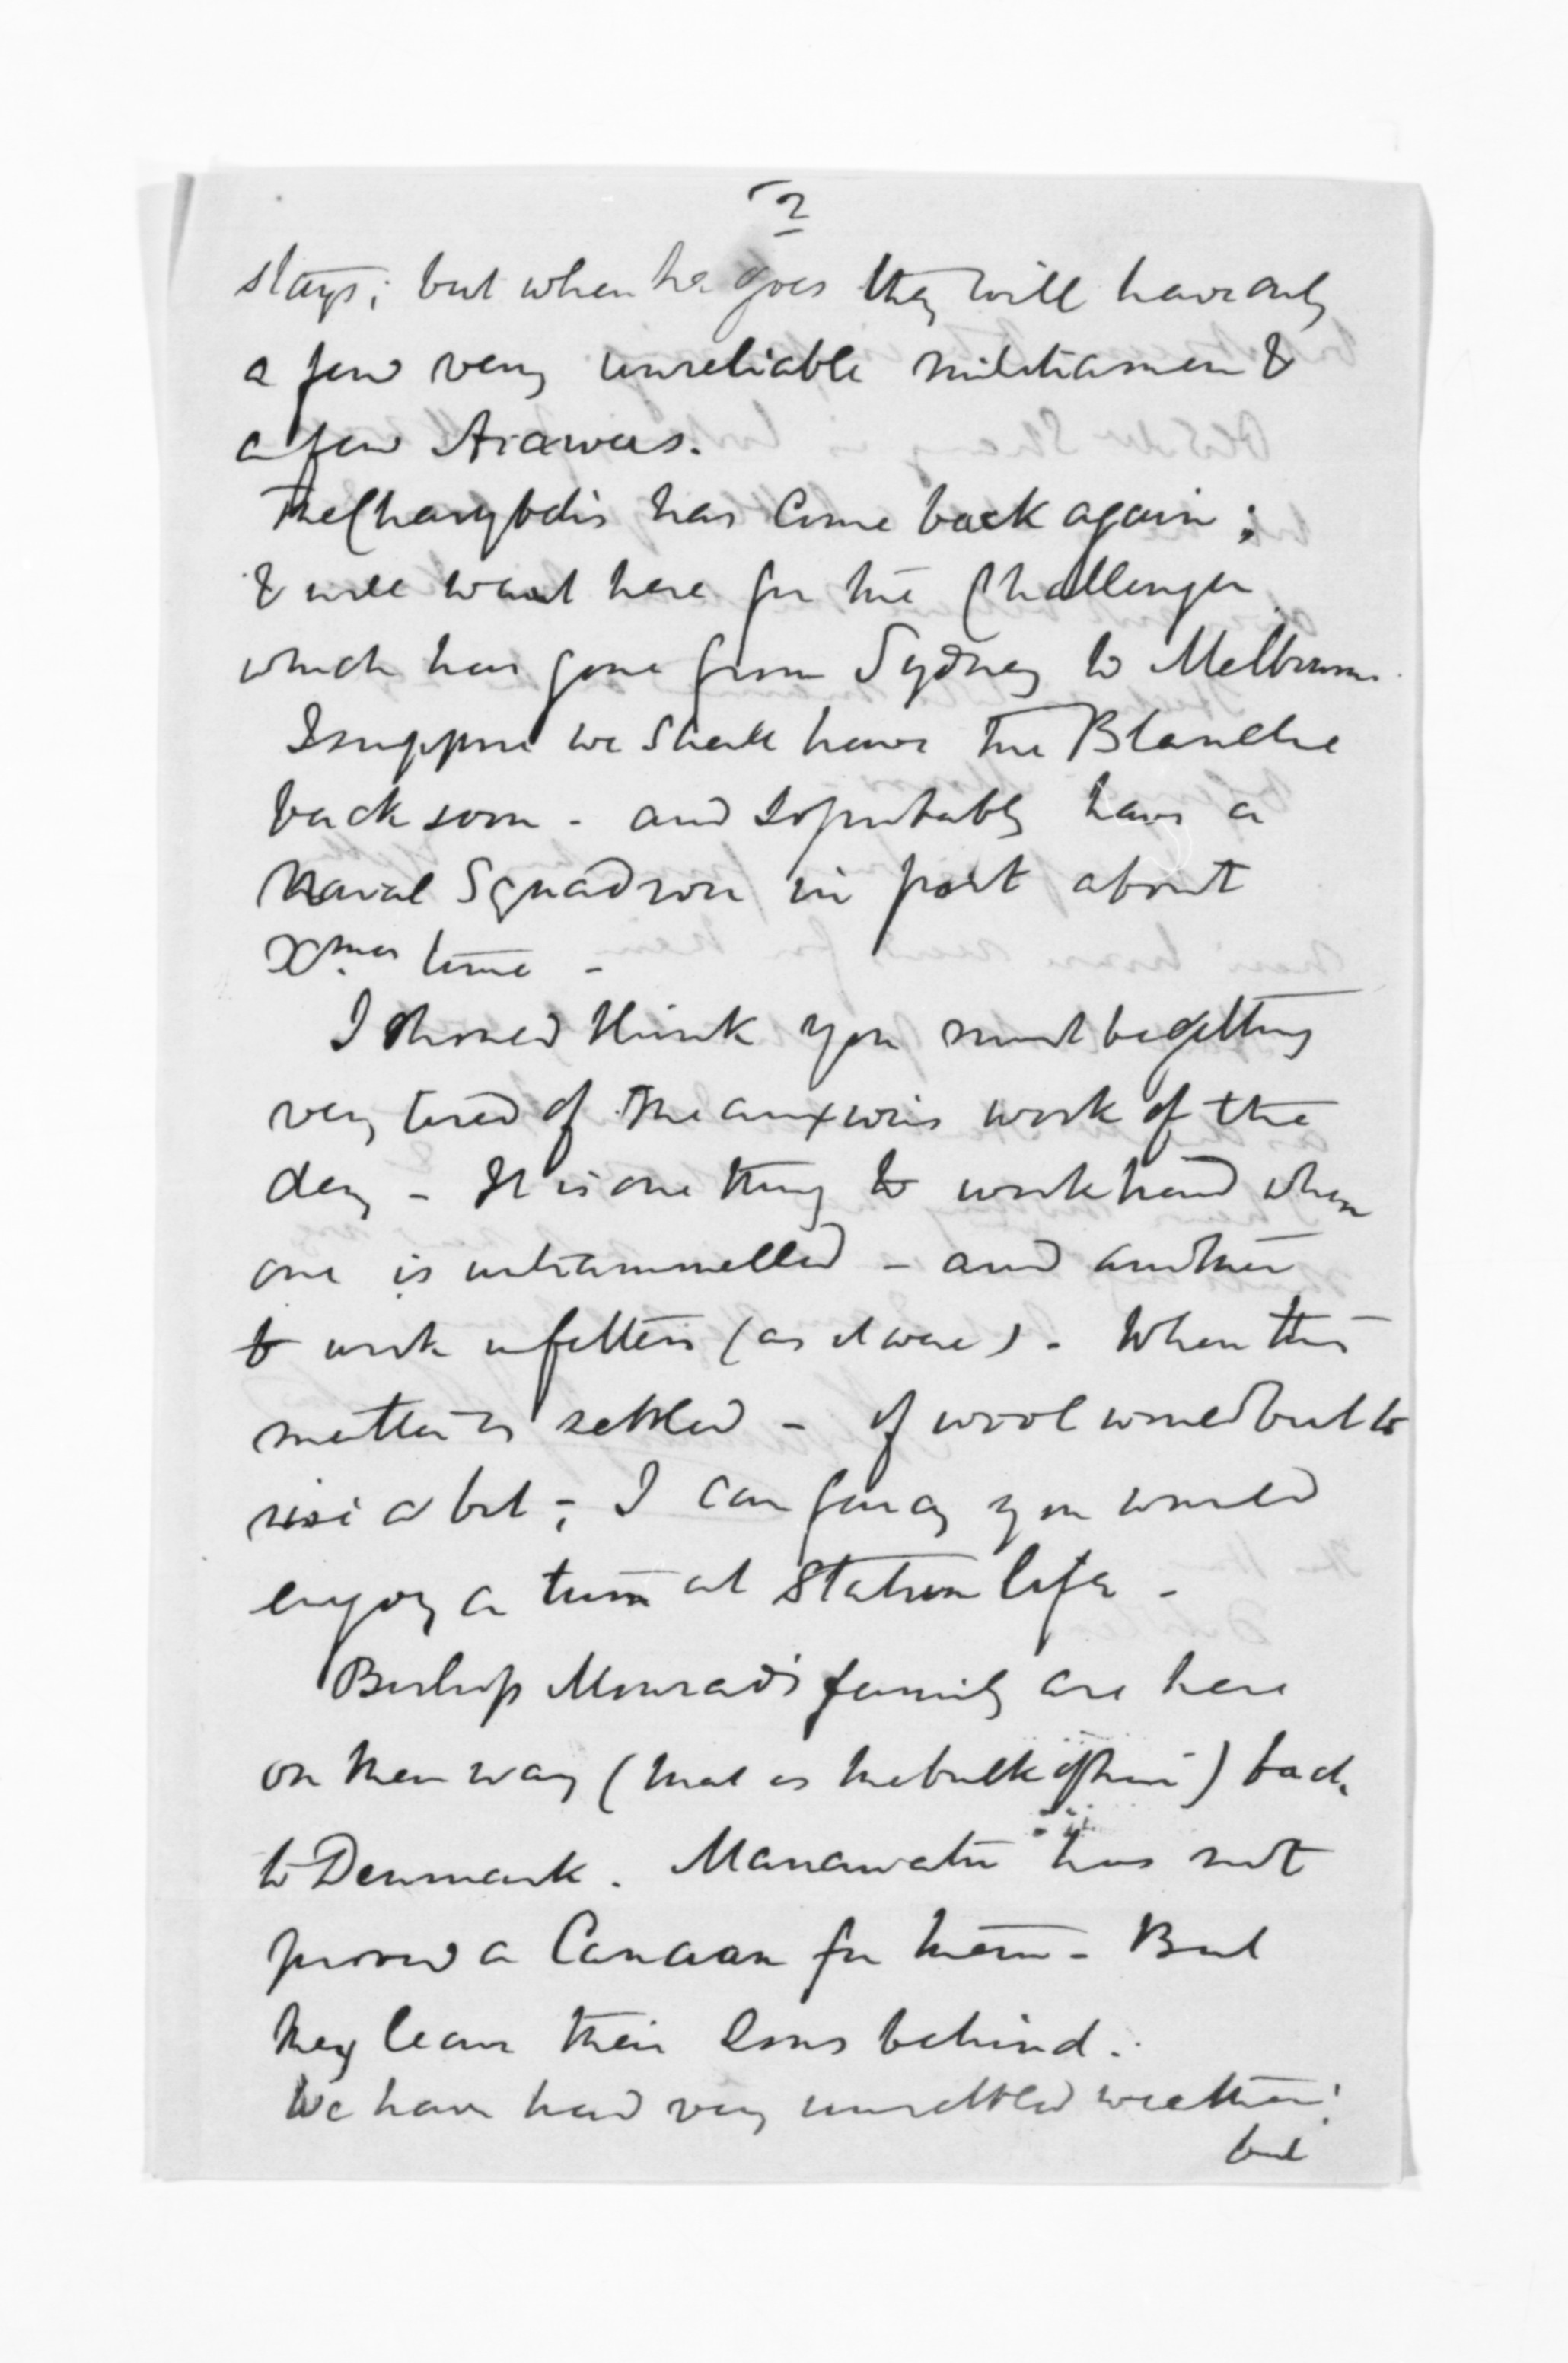 2
stays; but when he goes they will have only
a few very unreliable militiamen &
a few Arawas.
The Charybdis has come back again;
& will wait here for the Challenger
which has gone from Sydney to Melbourne.
I suppose we shall have the Blanche
back soon - and so probably have a
Naval Squadron in port about
Xmas time -
I should think you must be getting
very tired of the anxious work of the
day - It is one thing to work hard when
one is untrammelled - and another
to work in fetters (as it were). When this
matter is settled - if wool would but to
rise a bit; I can fancy you would
enjoy a turn at station life -
Bishop Monrad's family are here
on their way (that is the bulk of them) back
to Denmark. Manawatu has not
proved a Canaan for them - But
they leave their sons behind.
We have had very unsettled weather;
but